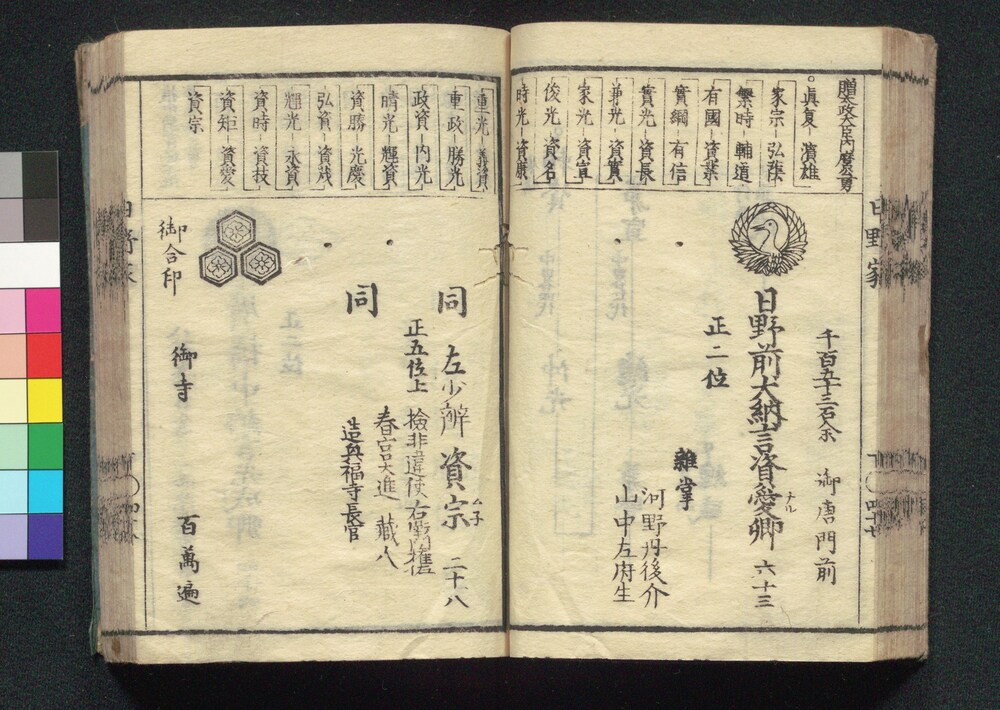 贈太政大臣内麿公男
眞夏
濱雄
家宗
弘蔭
繁時
輔道
有國
資業
實綱
有信
實光
資長
兼光
資實
家光
資宣
俊光
資名
時光
資康
日野家
千百五十三石余
御唐門前
日野前大納言資愛卿
ナル
六十三
正二位
雜掌
河野丹後介
山中左府生
四十七
重光
義資
重政
勝光
政資
内光
晴光
輝資
資勝
光慶
弘資
資茂
輝光
永資
資時
資枝
資矩
資愛
資宗
同
左少辨
資宗
ムネ
二十八
正五位上
檢非違使右衞門權佐
春宮大進
藏人
造興福寺長官
同
御合印
御寺
百萬遍
日野家